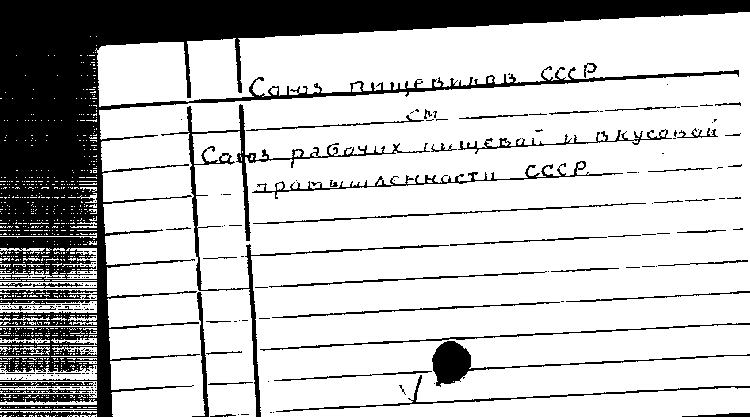 Союз пищевиков СССР
см
Союз рабочих пищевой и вкусовой
промышленности СССР